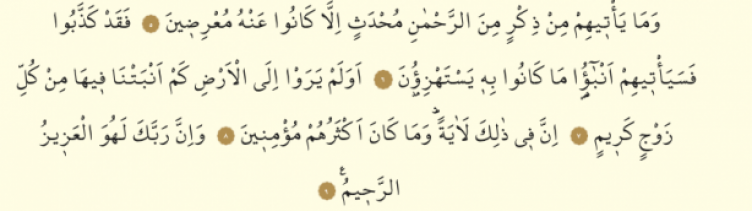 وَمَا يَأْتٖيهِمْ مِنْ ذِكْرٍ مِنَ الرَّحْمٰنِ مُحْدَثٍ اِلَّا كَانُوا عَنْهُ مُعْرِضٖينَ ٥ فَقَدْ كَذَّبُوا
فَسَيَأْتٖيهِمْ اَنْبٰٓؤُ۬ا مَا كَانُوا بِهٖ يَسْتَهْزِؤُ۫نَ ٦ اَوَلَمْ يَرَوْا اِلَى الْاَرْضِ كَمْ اَنْبَتْنَا فٖيهَا مِنْ كُلِّ
زَوْجٍ كَرٖيمٍ ٧ اِنَّ فٖى ذٰلِكَ لَاٰيَةًؕ وَمَا كَانَ اَكْثَرُهُمْ مُؤْمِنٖينَ ٨ وَاِنَّ رَبَّكَ لَهُوَ الْعَزٖيزُ
الرَّحٖيمُࣖ ٩